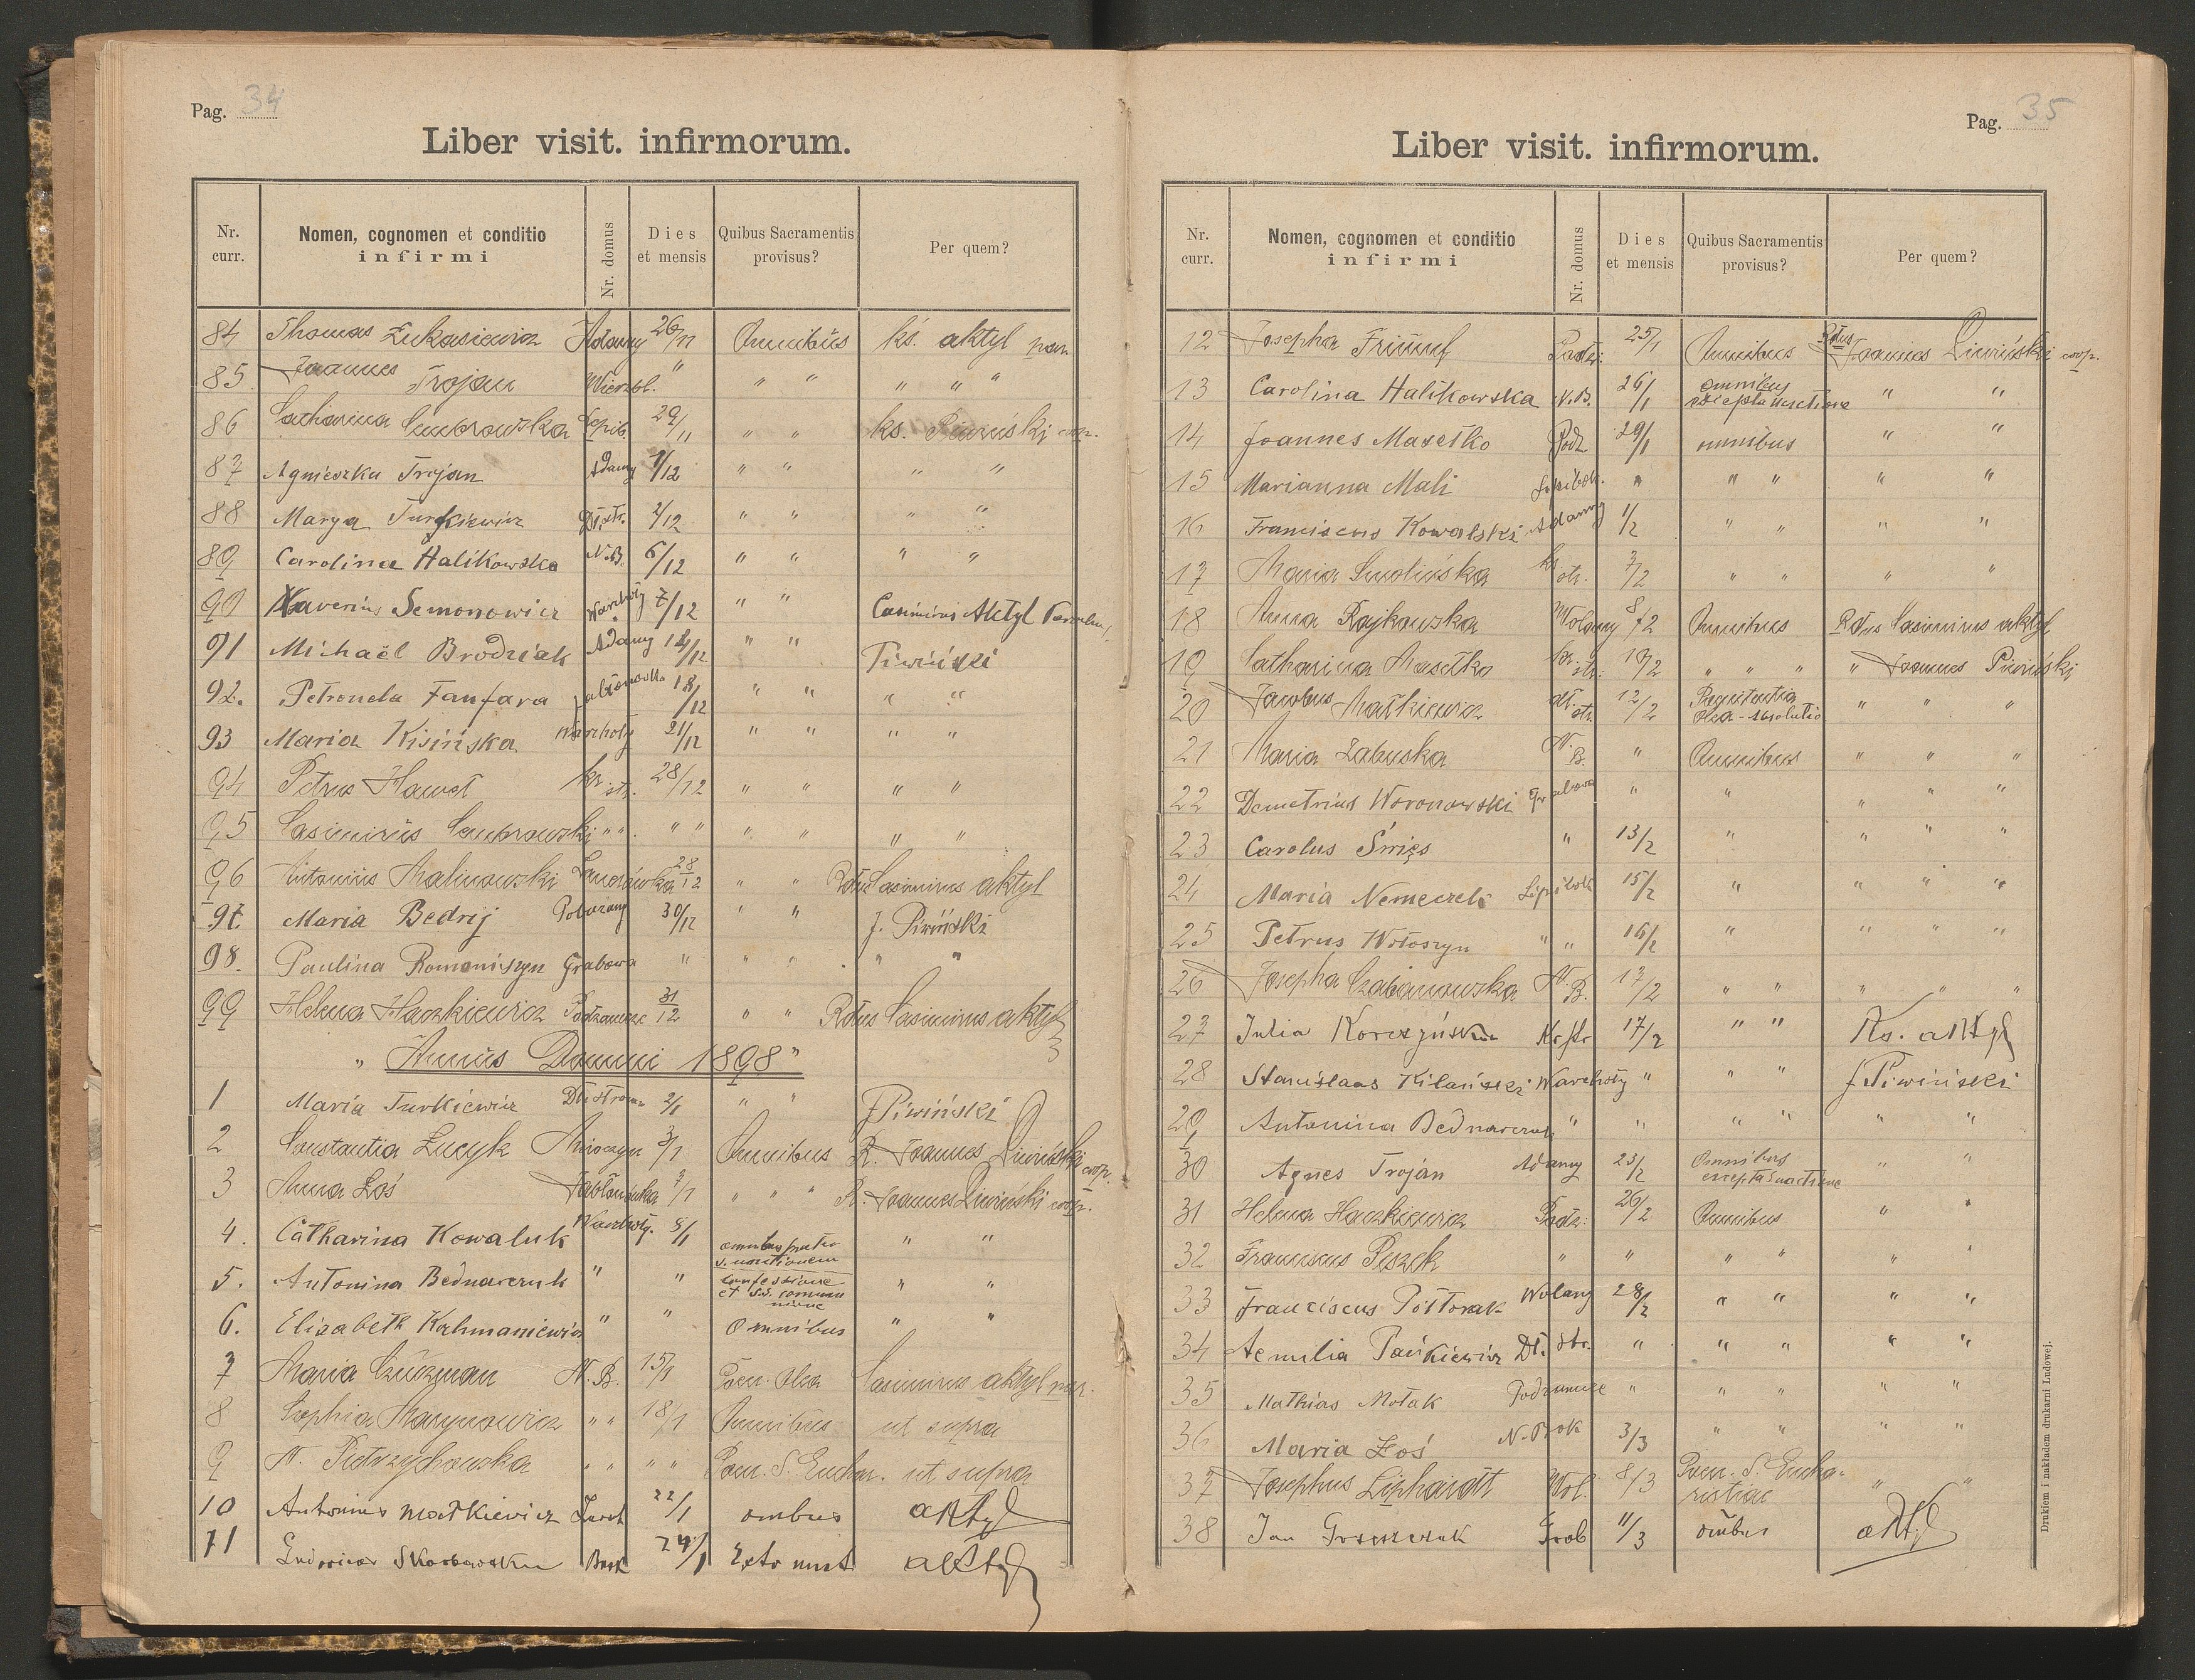 Pag. 34
Liber visit. infirmorum.
Nr. curr. Nomen, cognomen et conditio infirmi Nr. domus Dies et mensis Quibus Sacramentis provisus? Per quem?
84 Thomas Łukasiewicz Adamy 26/11 Omnibus ks. aktyl par.
85 Joannes Trojan Wierzbl. " " " " " "
86 Catharina Combrowska 29/11 " " ks. Piwiński coop.
87 Agnieszka Trojan Adamy 1/12 " " " "
88 Marya Turkiewicz Dł. str. 2/12 " " " "
89 Carolina Halikowska N.B. 6/12 " " " "
90 Xaverius Semonowicz Warchoły 7/12 " " Casimirus Aktyl
91 Michaël Brodziak Adamy 14/12 " " Piwiński
92. Petronela Fanfara Jabłonówka 18/12 " " " "
93 Maria Kisińska Warchoły 21/12 " " " "
94 Petrus Haweł kr. str. 28/12 " " " "
95 Casimirus " " " " " " " "
96 Antonius Malinowski 28/12 " " Rdus Casimirus aktyl
97. Maria Bedrij Pobużany 30/12 " " J. Piwiński
98. Paulina Romaniszyn Grabowa " " " " "
99 Helena Haczkiewicz Podzamcze 31/12 " " Rdus Casimirus aktyl
" Annus Domini 1898 "
1 Maria Turkiewicz 2/1 " " J Piwiński
2 Constantia Łucyk 3/1 Omnibus R. Joannes Piwiński coop.
3 Anna Łoś Jabłonówka 7/1 " " " R. Joannes Piwiński coop.
4. Catharina Kowaluk Warchoły. 8/1 omnibus praeter s. unctionem " "
5. Antonina Bednarczuk " " confessione et S.S. communione " "
6. Elisabeth Kahmaniewicz " " Omnibus " "
7 Maria N. B. 15/1 Poen. Olea Casimirus aktyl par.
8 Sophia Martynowicz " " 18/1 Omnibus ut supra
9 N. Pietrzychowska " " " " Poen. S. Euchar. ut supra
10 Antonius Małkiewicz 22/1 ombus aktyl
11 Skorbowska Busk 24/1 aktyl
Pag. 35
Liber visit. infirmorum.
Nr. curr. Nomen, cognomen et conditio infirmi Nr. domus Dies et mensis Quibus Sacramentis provisus? Per quem?
12 Josepha Podz. 25/1 Omnibus Rdus Joannes Piwiński coop.
13 Carolina Halikowska N.B. 26/1 omnibus excepta unctione " "
14 Joannes Masełko Podz 29/1 omnibus " "
15 Marianna Mali " " " " "
16 Franciscus Kowalski Adamy 1/2 " " " "
17 Maria Smolińska kr. str. 7/2 " " " "
18 Anna Rajkowska Wolany 8/2 Omnibus Rdus Casimirus aktyl
19 Catharina Masełko kr. str. 10/2 " " " " Joannes Piwiński
20 Jacobus Małkiewicz dł. str. 12/2 Poenitentia Olea - Absolutio " " "
21 Maria Zabuska N. B. " Omnibus " " "
22 Demetrius Woronowski Grabowa " " " " "
23 Carolus Świżs " 13/2 " " " "
24 Maria Nemeczek Lipibok 15/2 " " " "
25 Petrus Wołoszyn " " 16/2 " " " "
26 Josepha Czabanowska N. B. 17/2 " " " " "
27 Julia Korczyńska Kr str 17/2 " " Ks. aktyl
28 Stanislaus Kilański Warchoły " " " J Piwiński
29 Antonina Bednarczuk " " " " " "
30 Agnes Trojan Adamy 23/2 Omnibus excepta S unctione " "
31 Helena Haczkiewicz Podz. 26/2 Omnibus " "
32 Franciscus Peszek " " " " " "
33 Franciscus Półtorak Wolany 28/2 " " " "
34 Aemilia Pańkiewicz Dł. str. " " " " "
35 Mathias Motak Podzamcze " " " " "
36 Maria Łoś N. Bok 3/3 " " " "
37 Josephus Liphardt Wol. 8/3 Poen. S. Eucharistiae " "
38 Jan Grab 11/3 ōmbus aktyl
Drukiem i nakładem drukarni Ludowej.